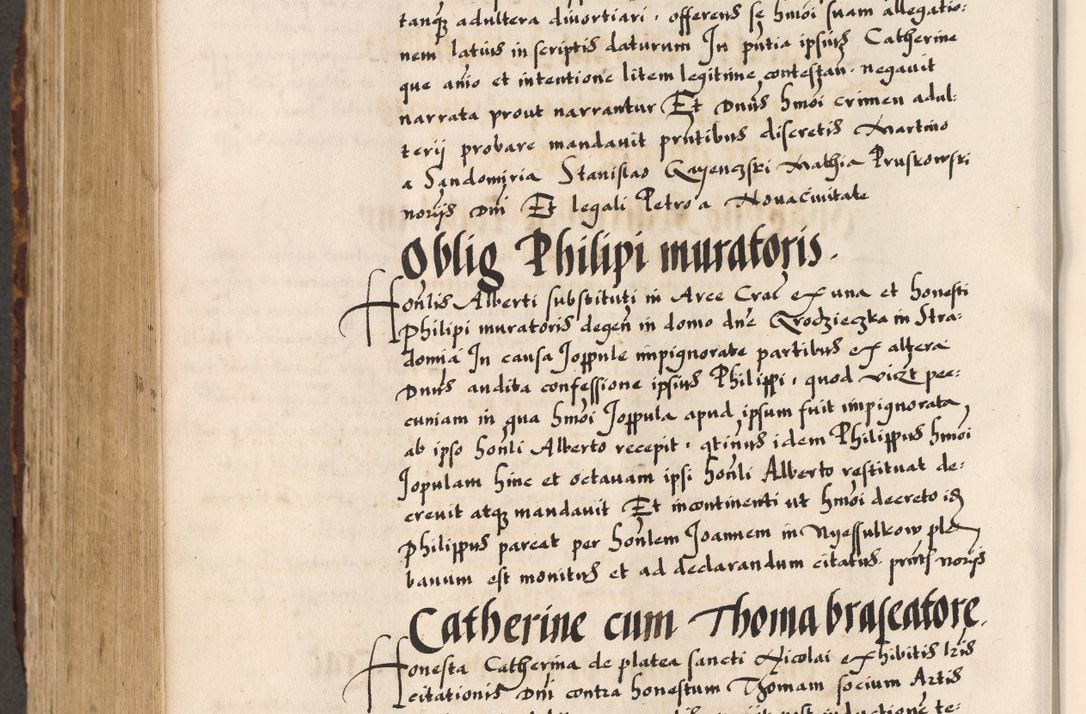 tanq adultera divortiari . offerens se hmoi suam allegatio:
nem latius in scriptis daturum In pntia ipsius Catherine
que anio et intentione litem legitime contestan . negavit
narrata prout narrantur Et Dnus hmoi crimen adul:
terij probare mandavit pntibus discretis Martino
a Sandomiria Stanislao Gayenczski Mathia Pruskowski
norijs Dni Et legali Petro a Novacivitate
Oblig Philipi muratoris .
Honlis Alberti substituti in Arce Crac ex una et honesti
Philipi muratoris degen in domo dne Grodzieczka in Stra:
domia In causa Joppule impignorate partibus ex altera
Dnus audita confessione ipsius Philippi , quod vizt pec:
cuniam in qua hmoi Joppula apud ipsum fuit impignorata
ab ipso honli Alberto recepit . qtinus idem Philippus hmoi
Jopulam hinc et octavam ipsi honli Alberto restituat de:
crevit atq mandavit Et incontinenti ut hmoi decreto id
Philippus pareat per honlem Joannem in Nyessulkow ple
banum est monitus et ad declarandum citatus . pntf norijs
Catherine cum Thoma braseatore .
Honesta Catherina de platea sancti Nicolai exhibitis lris
citationis Dni contra honestum Thomam socium Artis